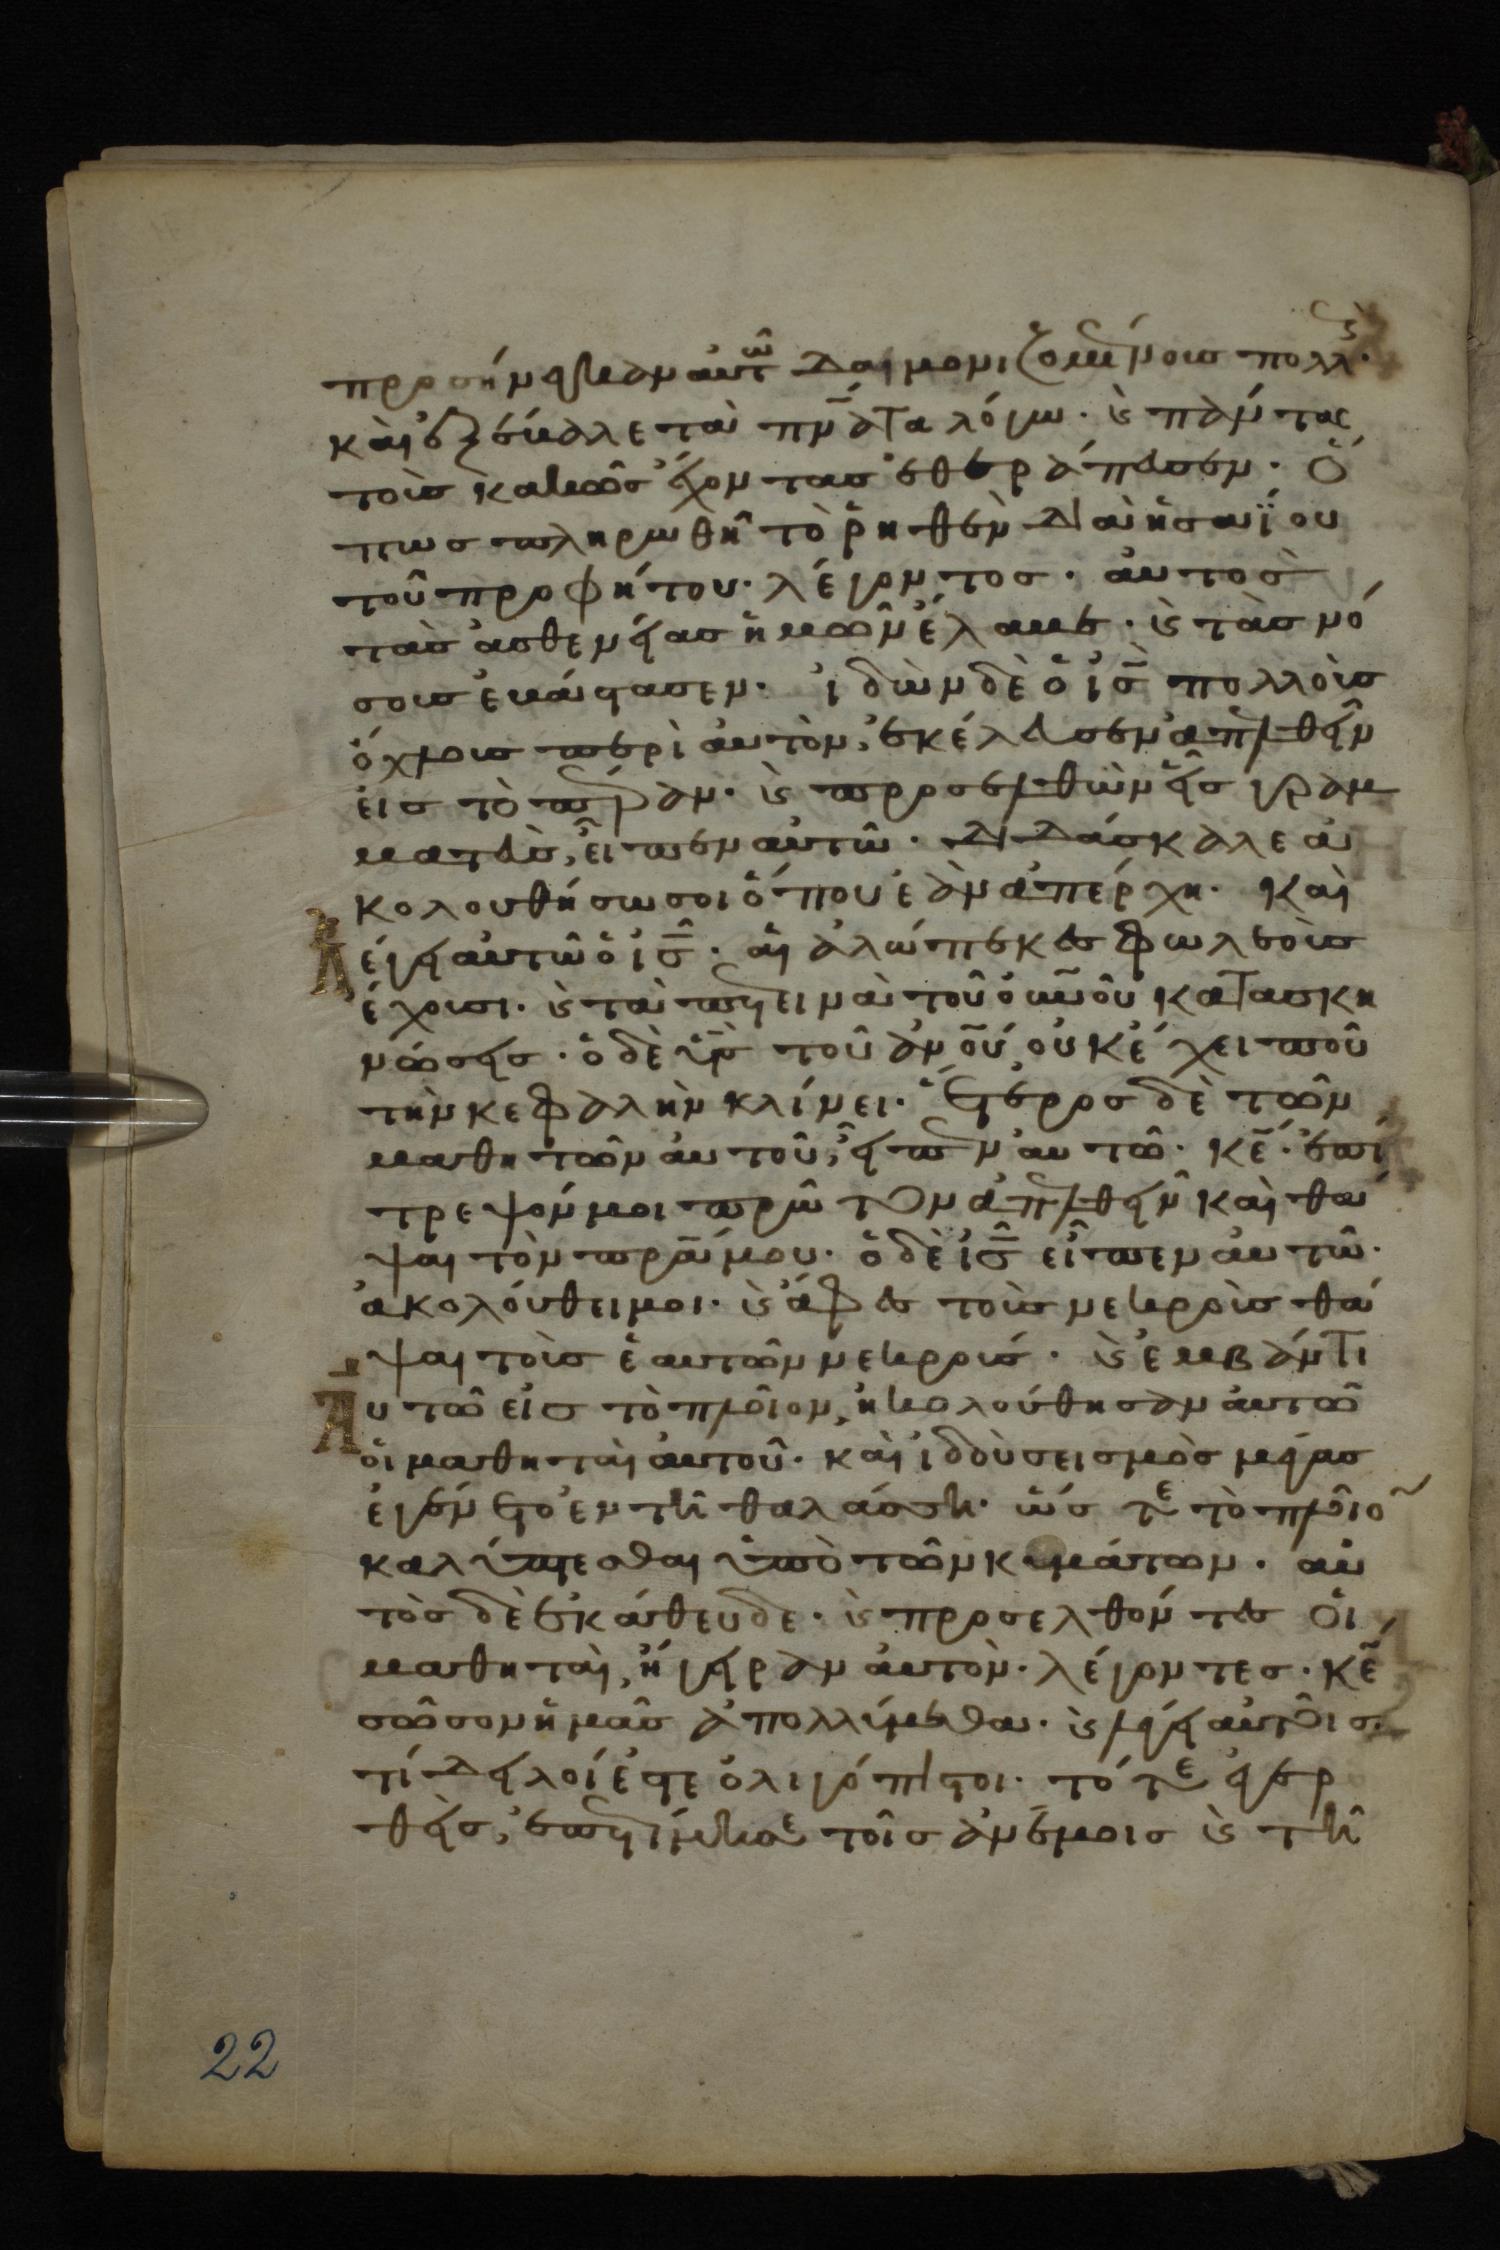 προσήνεγκαν αὐτῶ δαιμονιζομένους πολλ(ούς)·
καὶ ἐξέβαλε τὰ πν̅ατα λόγω· κ(αὶ) πάντας
τοὺς κακῶς ἔχοντας ἐθεράπευσεν· ὅ
πως πληρωθῆ τὸ ῥηθὲν διὰ ἡσαΐου
τοῦ προφήτου· λέγοντος· αὐτὸς
τὰς ἀσθενείας ἡμῶν ἔλαβε· κ(αὶ) τὰς νό
σους ἐβάστασεν· ἰδὼν δὲ ὁ ι̅σ̅ πολλοὺς
ὄχλους περὶ αὐτὸν, ἐκέλευσεν ἀπελθεῖν
εἰς τὸ πέραν· κ(αὶ) προσελθὼν εἷς γραμ
ματεὺς, εἶπεν αὐτῶ· διδάσκαλε ἀ
κολουθήσω σοι ὅπου ἐὰν ἀπέρχη· Καὶ
λέγει αὐτῶ ὁ ι̅σ̅· αἱ ἀλώπεκες φωλεοὺς
ἔχουσι· κ(αὶ) τὰ πετεινὰ τοῦ ου̅νοῦ κατασκη
νώσεις· ὁ δὲ υ̅ς̅ τοῦ ἀν̅ο̅υ̅, οὐκ ἔχει ποῦ
τὴν κεφαλὴν κλίνει· Ἕτερος δὲ τῶν
μαθητῶν αὐτοῦ, εἶπεν αὐτῶ· κ̅ε̅· ἐπί
τρεψόν μοι πρῶτον ἀπελθεῖν καὶ θά
ψαι τὸν π̅ρ̅α̅ μου· ὁ δὲ ι̅σ̅ εἶπεν αὐτῶ·
ἀκολούθει μοι· κ(αὶ) ἄφες τοὺς νεκροὺς θά
ψαι τοὺς ἑαυτῶν νεκρούς· κ(αὶ) ἐμβάντι
Αυτῶ εἰς τὸ πλοῖον, ἠκολούθησαν αὐτῶ
οἱ μαθηταὶ αὐτοῦ· καὶ ἰδοὺ σεισμὸς μέγας
ἐγένετο ἐν τῆ θαλάσση· ὥστε τὸ πλοῖο(ν)
καλύπτεσθαι ὑπὸ τῶν κυμάτων· αὐ
τὸς δὲ ἐκάθευδε· κ(αὶ) προσελθόντες οἱ
μαθηταὶ, ἤγειραν αὐτὸν· λέγοντες· κ̅ε̅
σῶσον ἡμᾶς ἀπολλύμεθα· κ(αὶ) λέγει αὐτοῖς·
τί δειλοί ἐστε ὀλιγόπιστοι· τότε ἐγερ
θεὶς, ἐπετίμησε τοῖς ἀνέμοις κ(αὶ) τῆ
22